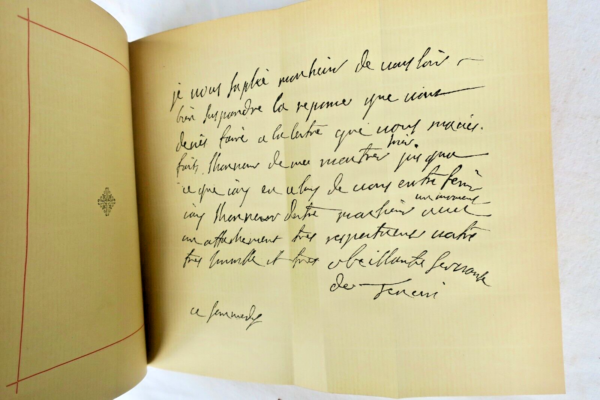 je vous suplie monsieur de vouloir
bien suspendre la reponse que vous
devés faire a la lettre que vous maviés
fait lhonneur de me montrer hier jusque
a ce que iay eu a lieu de vous entretenir
un moment
iay lhonneur detre monsieur avec
un attachement tres respectueux votre
tres humble et tres obeissante servante
de Tencin
ce samedy